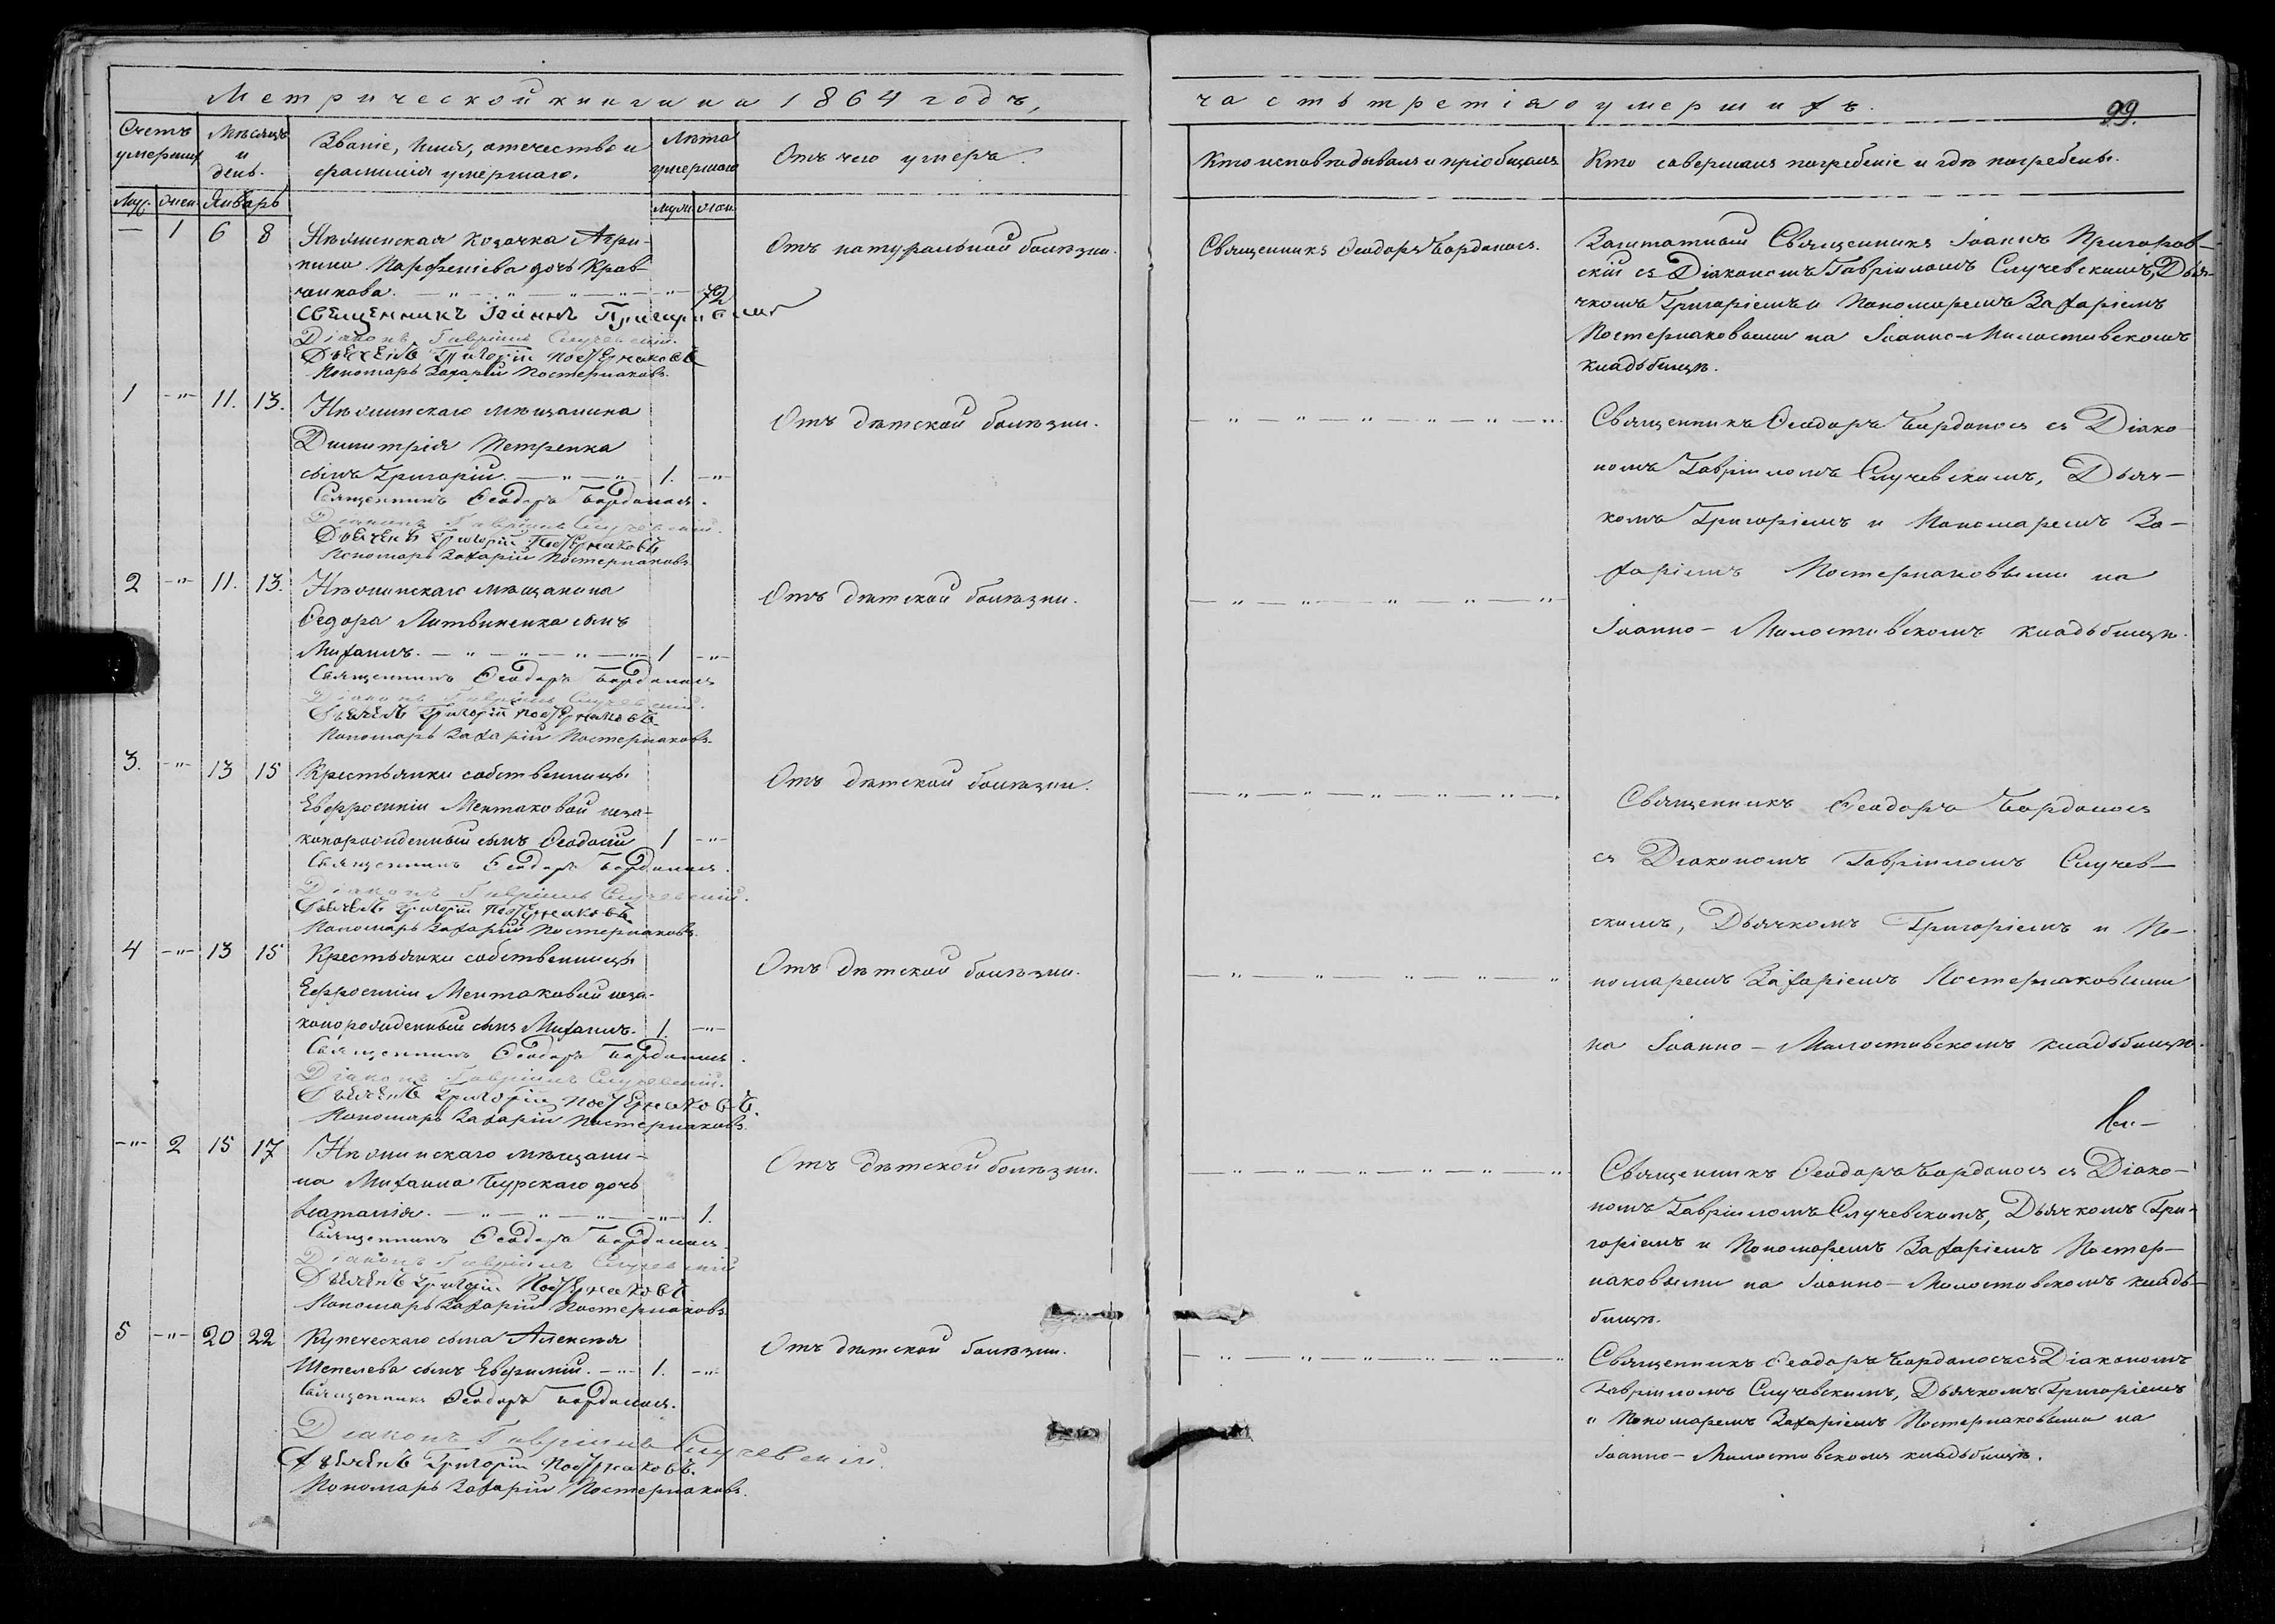 Метрической книги на 1864 годъ,
Счетъ умершихъ
Мѣсяцъ и день.
Званіе, имя, отечество и фамилія умершаго.
Лѣта умершаго
Отъ чего умеръ.
Муж. Жен. Январь
муж жен
— 1 6 8 Нѣжинская козачка Агри-
пина Парфеніева дочь Крав-
чикова. — „ — „ — „ — „ — 72
Отъ натуральной болѣзни.
Священникъ Іоаннъ
Діаконъ Гавріилъ Случевскій.
Дьячекъ Григорій Постернаковъ
Пономарь Захарій Постернаковъ.
1 -„- 11. 13. Нѣжинскаго мѣщанина
Димитрія Петренка
сынъ Григорій. — „ — „ — 1. -„-
Отъ дѣтской болѣзни.
Священникъ Ѳеодоръ Бордоносъ.
Діаконъ Гавріилъ Случевскій.
Дьячекъ Григорій Постернаковъ
Пономарь Захарій Постернаковъ
2 -„- 11. 13. Нѣжинскаго мѣщанина
Ѳедора Литвиненка сынъ
Михаилъ. — „ — „ — „ — „ — 1 -„-
Отъ дѣтской болѣзни.
Священникъ Ѳеодоръ Бордоносъ
Діаконъ Гавріилъ Случевскій.
Дьячекъ Григорій Постернаковъ
Пономарь Захарій Постернаковъ.
3. -„- 13 15 Крестьянки собственницы
Евфросиніи Ментаковой неза-
конорожденный сынъ Ѳеодосій 1 -„-
Отъ дѣтской болѣзни.
Священникъ Ѳеодоръ Бордоносъ.
Діаконъ Гавріилъ Случевскій.
Дьячекъ Григорій Постернаковъ
Пономарь Захарій Постернаковъ.
4 -„- 13 15 Крестьянки собственницы
Ефросиніи Ментаковой неза-
конорожденный сынъ Михаилъ. 1. -„-
Отъ дѣтской болѣзни.
Священникъ Ѳеодоръ Бордоносъ.
Діаконъ Гавріилъ Случевскій.
Дьячекъ Григорій Постернаковъ.
Пономарь Захарій Постернаковъ.
-„- 2 15 17 Нѣжинскаго мѣщани-
на Михаила Бурскаго дочь
Наталія. — „ — „ — „ — „ — 1.
Отъ дѣтской болѣзни.
Священникъ Ѳеодоръ Бордоносъ.
Діаконъ Гавріилъ Случевскій
Дьячекъ Григорій Постернаковъ
Пономарь Захарій Постернаковъ
5 -„- 20 22 Купеческаго сына Алексѣя
Шепелева сынъ Евфимій. — „ — 1. -„-
Отъ дѣтской болѣзни.
Священникъ Ѳеодоръ Бордоносъ.
Діаконъ Гавріилъ Случевскій.
Дьячекъ Григорій Постернаковъ.
Пономарь Захарій Постернаковъ.
часть третія о умершихъ.
99.
Кто исповѣдывалъ и пріобщалъ
Кто совершалъ погребеніе и гдѣ погребены.
Священникъ Ѳеодоръ Бордоносъ.
Заштатный Священникъ Іоаннъ Пригоров-
скій съ Діакономъ Гавріиломъ Случевскимъ, Дья-
чкомъ Григоріемъ и Пономаремъ Захаріемъ
Постернаковыми на Іоанно-Милостивскомъ
кладбищѣ.
— „ — „ — „ — „ — „ — „
Священникъ Ѳеодоръ Бордоносъ съ Діако-
номъ Гавріиломъ Случевскимъ, Дьяч-
комъ Григоріемъ и Пономаремъ За-
харіемъ Постернаковыми на
Іоанно-Милостивскомъ кладбищѣ.
— „ — „ — „ — „ — „
— „ — „ — „ — „ — „ — .
Священникъ Ѳеодоръ Бордоносъ
съ Діакономъ Гавріиломъ Случев-
скимъ, Дьячкомъ Григоріемъ и По-
номаремъ Захаріемъ Постернаковыми
на Іоанно-Милостивскомъ кладбищѣ.
— „ — „ — „ — „ — „
— „ — „ — „ — „ — „ — „
Священникъ Ѳеодоръ Бордоносъ съ Діако-
номъ Гавріиломъ Случевскимъ, Дьячкомъ Гри-
горіемъ и Пономаремъ Захаріемъ Постер-
наковыми на Іоанно-Милостивскомъ кладь-
бищѣ.
— „ — „ — „ — „ — „
Священникъ Ѳеодоръ Бордоносъ съ Діакономъ
Гавріиломъ Случевскимъ, Дьячкомъ Григоріемъ
и Пономаремъ Захаріемъ Постернаковыми на
Іоанно-Милостивскомъ кладьбищѣ.